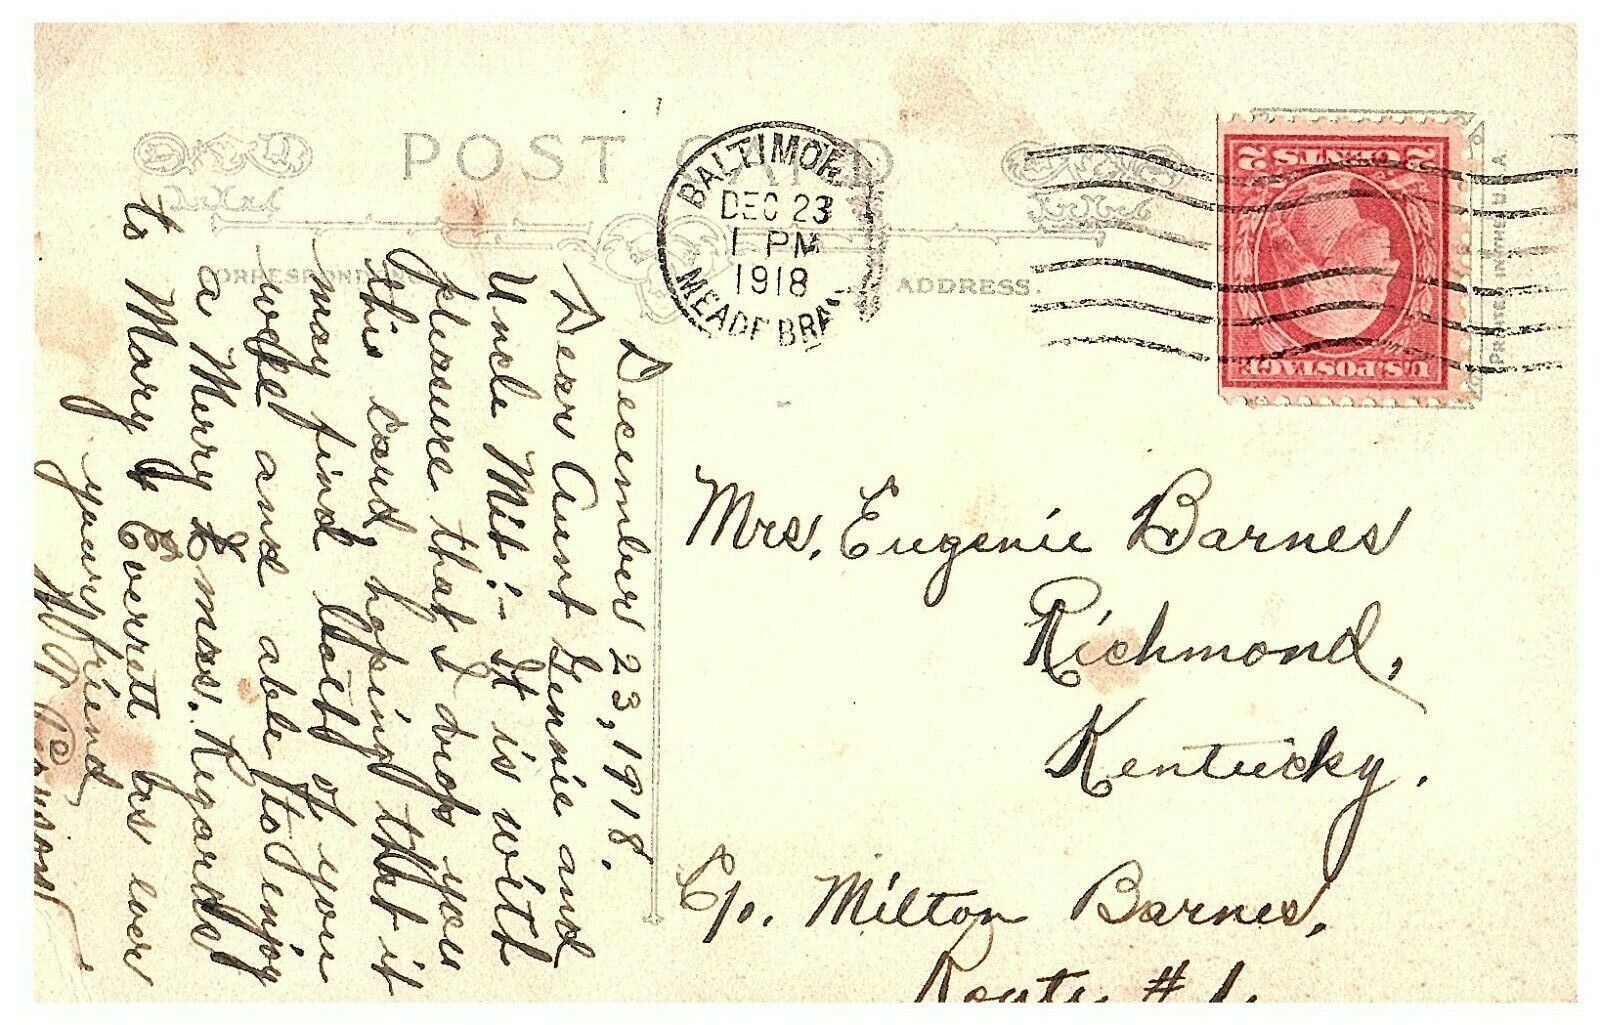 POST CARD
CORRESPONDENCE
ADDRESS.
BALTIMORE
DEC 23
1 PM
1918
MEADE BRA
2 CENTS 2
U.S. POSTAGE
PRINTED IN THE U.S.A
December 23, 1918.
Dear Aunt Gennie and
Uncle Mit:- It is with
pleasure that I drop you
this card, hoping that it
may find both of you
well and able to enjoy
a Merry Xmas. Regards
to Mary & Everett. as ever
your friend
Mrs. Eugenie Barnes
Richmond,
Kentucky.
C/o. Milton Barnes,
Route #1.